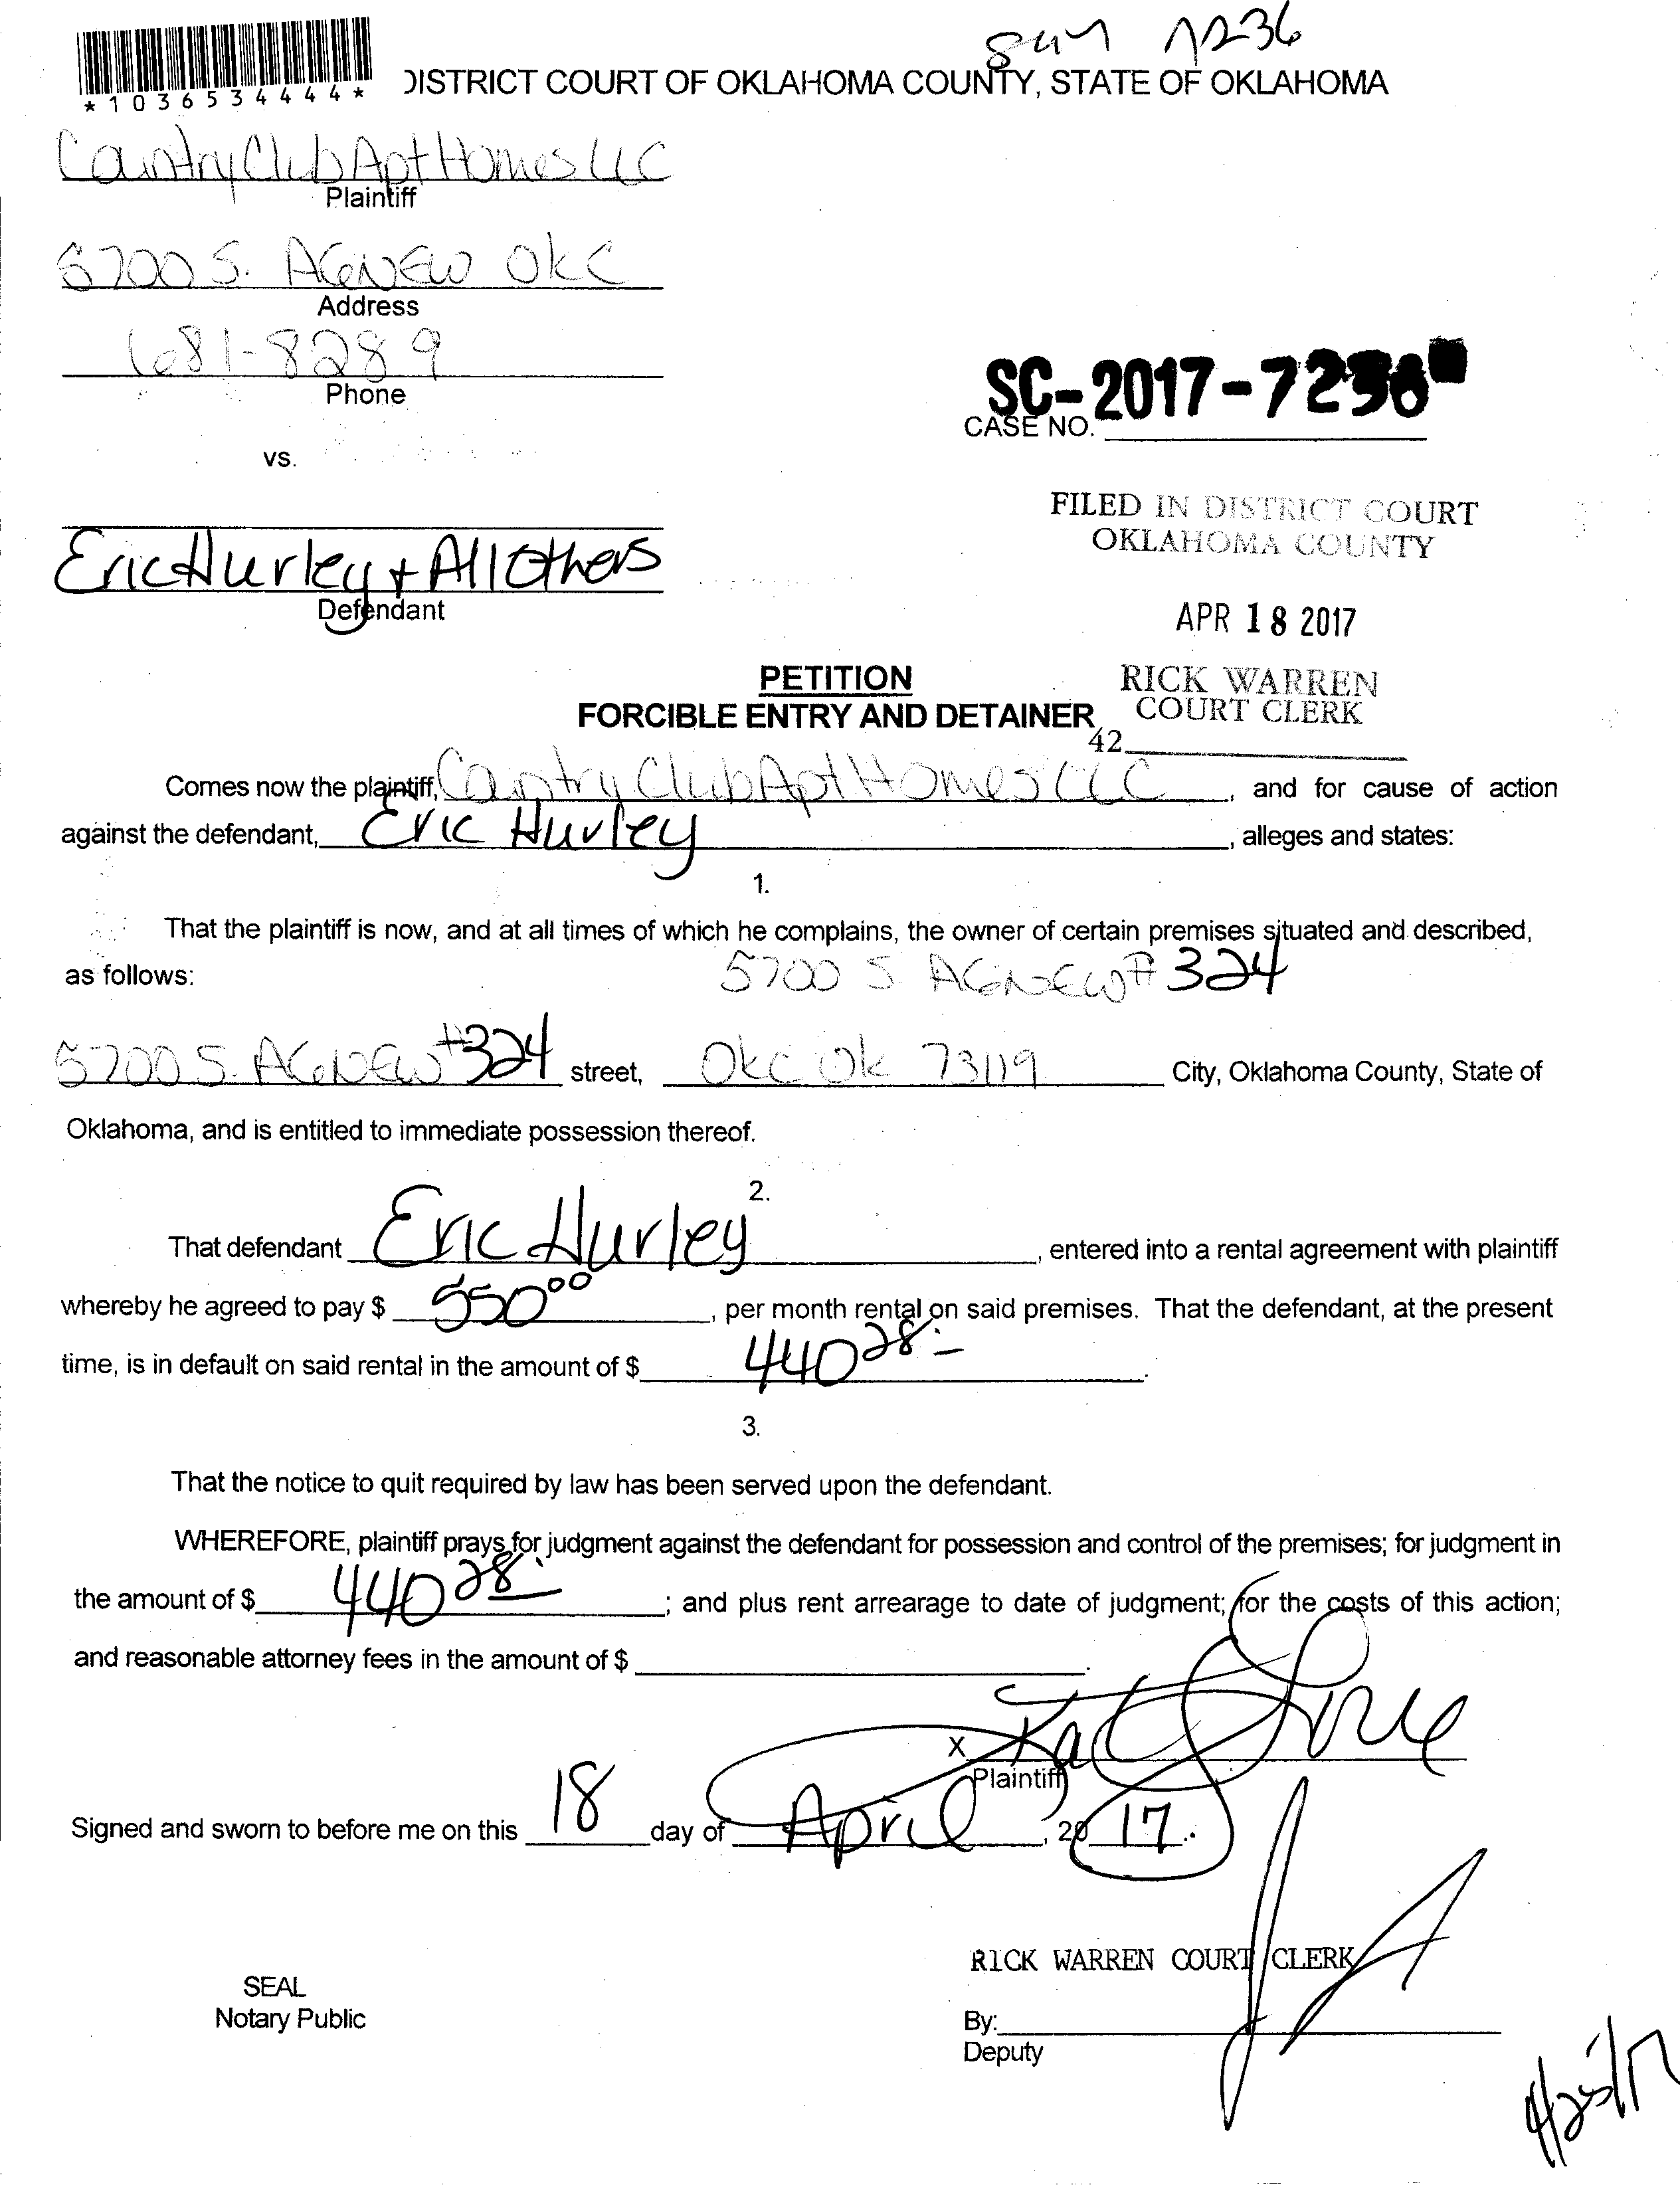 7236
*1036534444*
DISTRICT COURT OF OKLAHOMA COUNTY, STATE OF OKLAHOMA
Country Club Apt Homes LLC
Plaintiff
5700 S. AGNEW OKC
Address
681-8289
Phone
SC-2017-7236
CASE NO.
vs.
FILED IN DISTRICT COURT
OKLAHOMA COUNTY
Eric Hurley + All Others
Defendant
APR 18 2017
PETITION
RICK WARREN
FORCIBLE ENTRY AND DETAINER
COURT CLERK
42
Comes now the plaintiff, Country Club Apt Homes LLC, and for cause of action
against the defendant, Eric Hurley, alleges and states:
1.
That the plaintiff is now, and at all times of which he complains, the owner of certain premises situated and described,
as follows: 5700 S. AGNEW # 324
5700 S. AGNEW #324 street, OKC OK 73119 City, Oklahoma County, State of
Oklahoma, and is entitled to immediate possession thereof.
2.
That defendant Eric Hurley, entered into a rental agreement with plaintiff
whereby he agreed to pay $ 550 00, per month rental on said premises. That the defendant, at the present
time, is in default on said rental in the amount of $ 440 28.
3.
That the notice to quit required by law has been served upon the defendant.
WHEREFORE, plaintiff prays for judgment against the defendant for possession and control of the premises; for judgment in
the amount of $ 440 28; and plus rent arrearage to date of judgment; for the costs of this action;
and reasonable attorney fees in the amount of $ .
X
Plaintiff
Signed and sworn to before me on this 18 day of April, 2017.
RICK WARREN COURT CLERK
SEAL
Notary Public
By:
Deputy
4/25/17